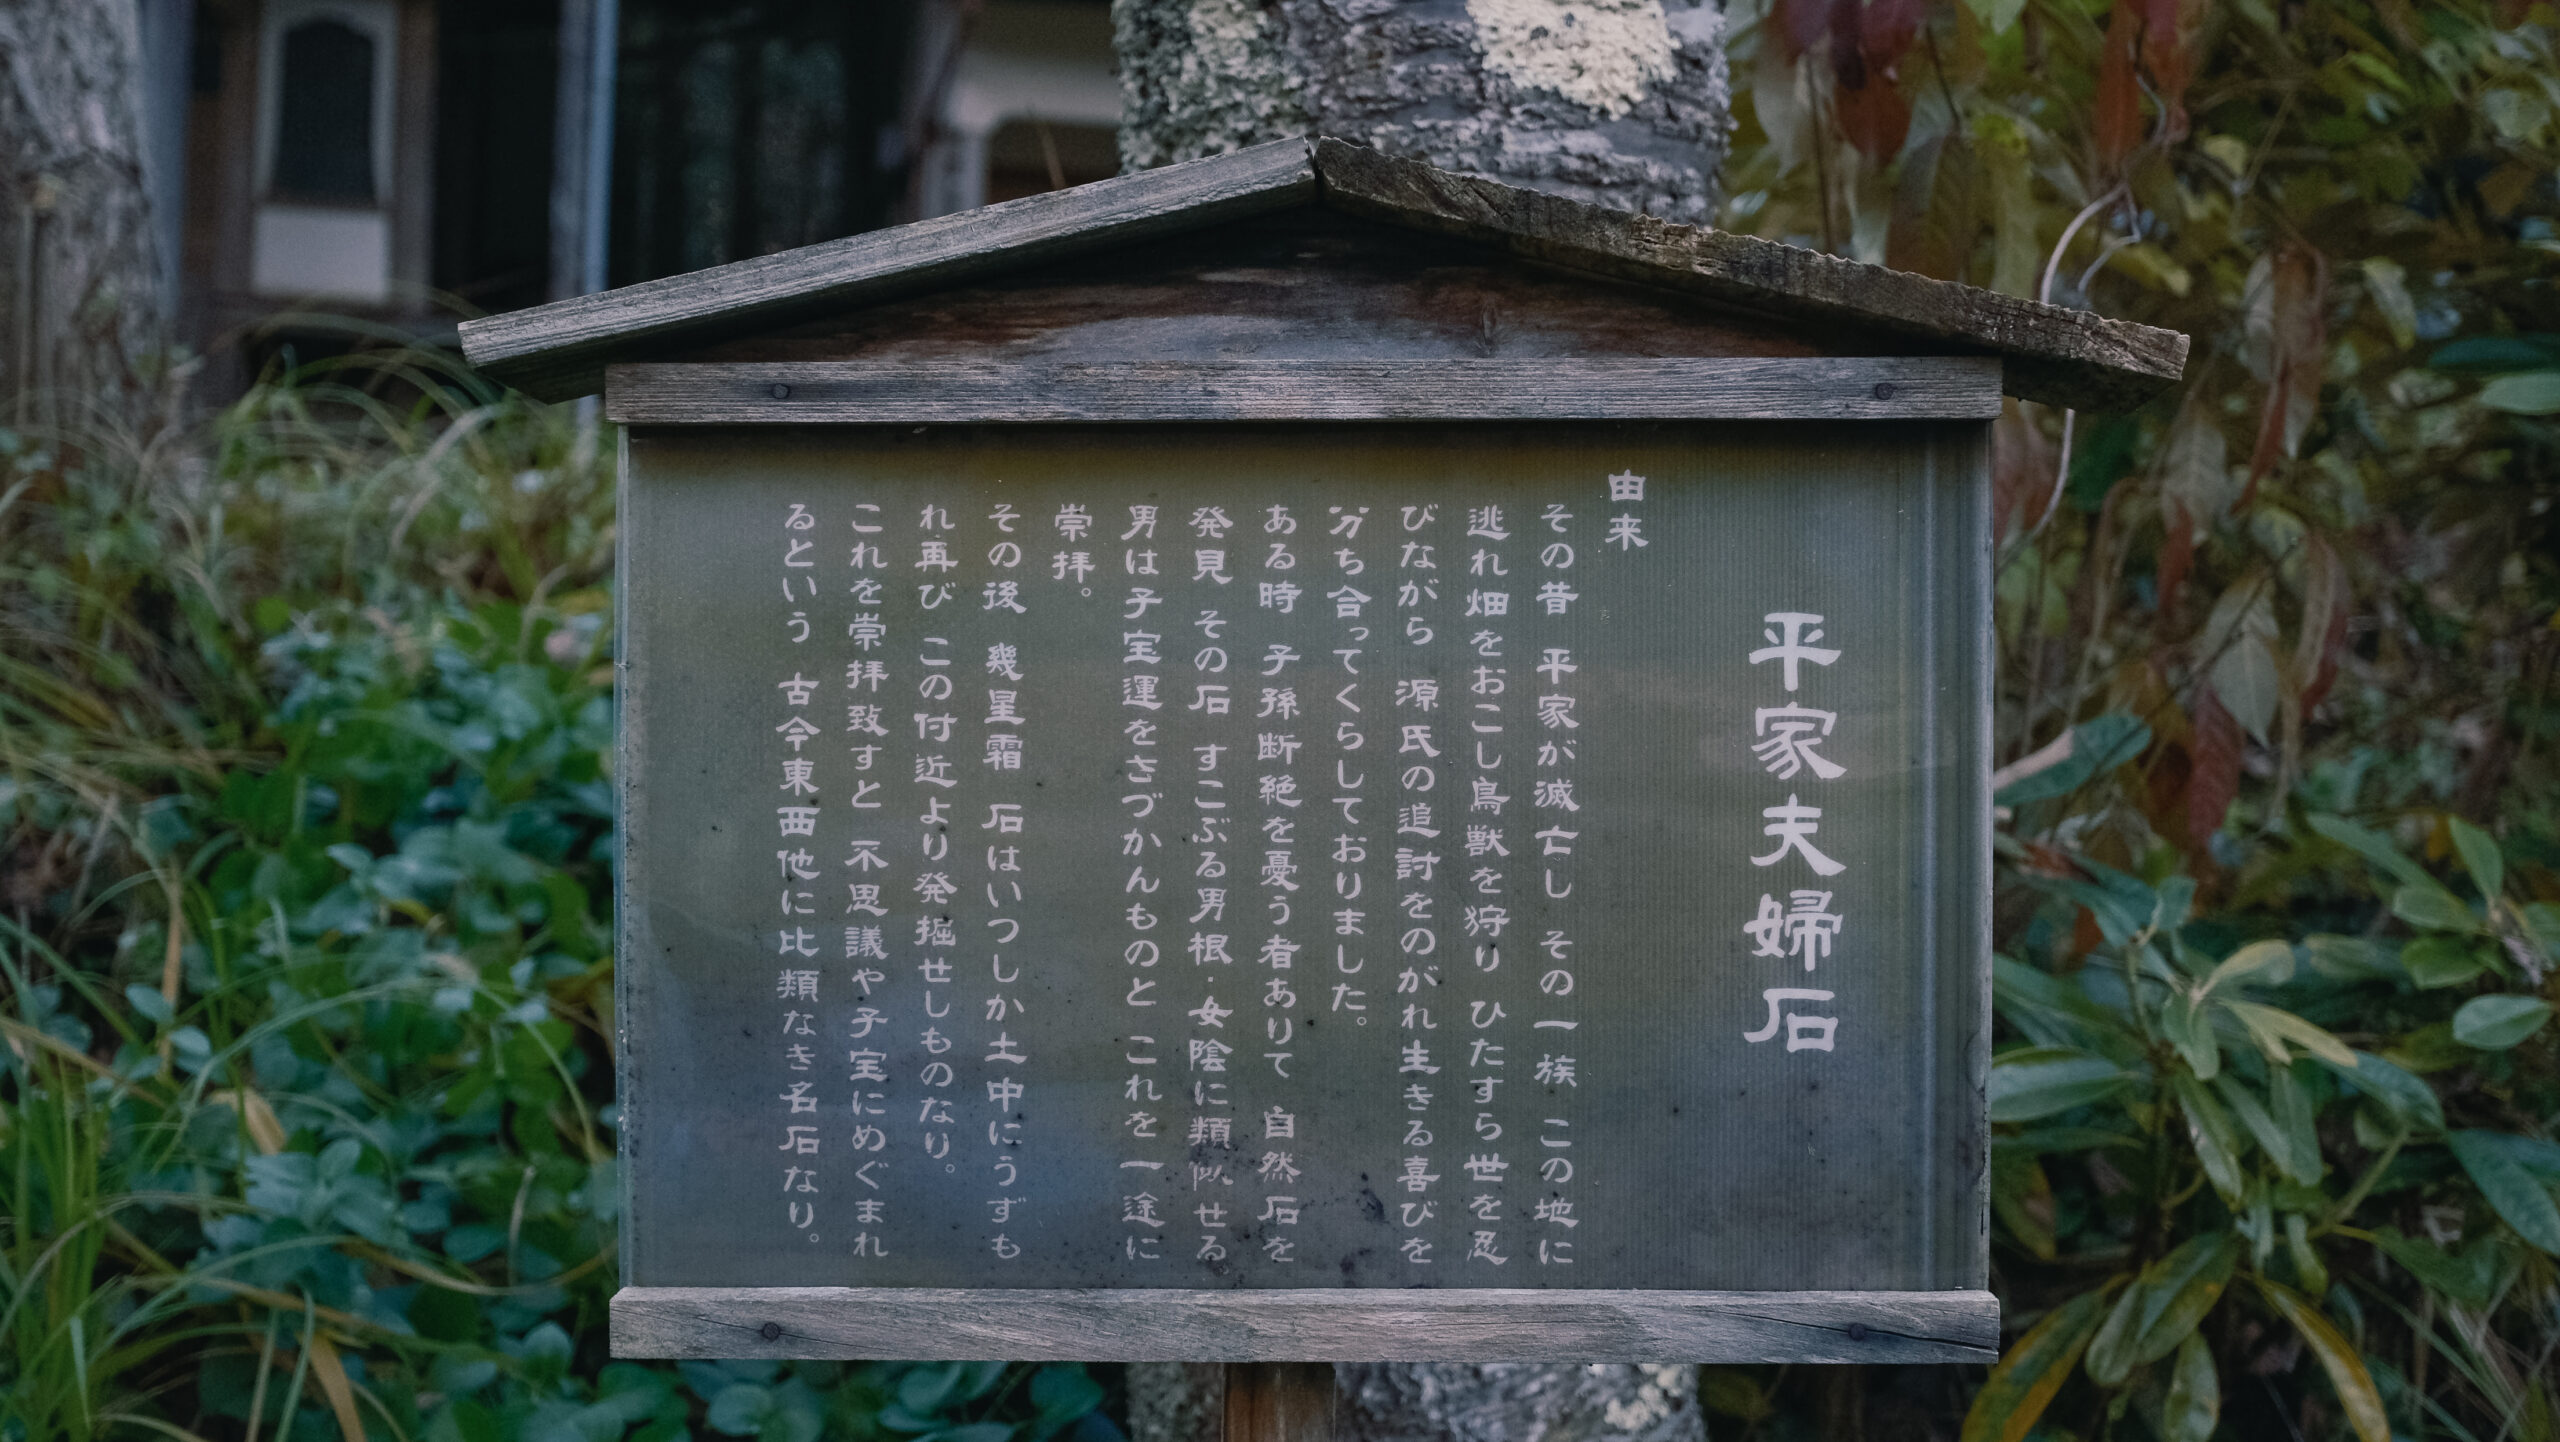 平家夫婦石
由来
その昔 平家が滅亡し その一族 この地に
逃れ畑をおこし鳥獣を狩り ひたすら世を忍
びながら 源氏の追討をのがれ生きる喜びを
分ち合ってくらしておりました。
ある時 子孫断絶を憂う者ありて 自然石を
発見 その石 すこぶる男根・女陰に類似せる
男は子宝運をさづかんものと これを一途に
崇拝。
その後 幾星霜 石はいつしか土中にうずも
れ再び この付近より発掘せしものなり。
これを崇拝致すと 不思議や子宝にめぐまれ
るという 古今東西他に比類なき名石なり。